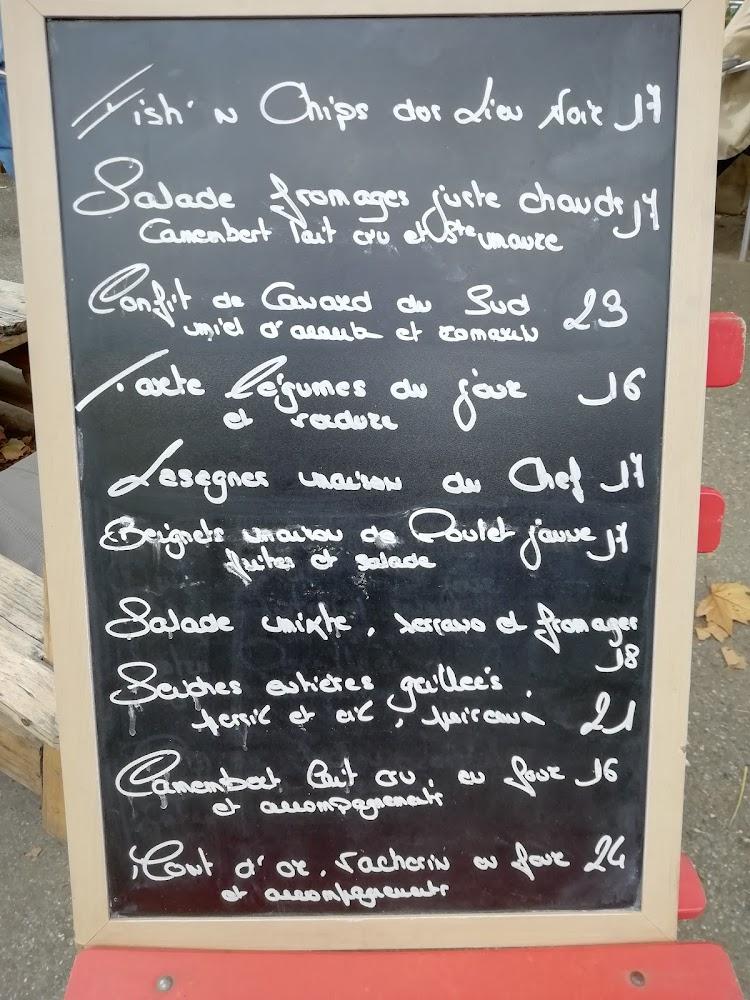 Fish' n Chips dos Lieu Noir 17
Salade fromages juste chauds 17
Camembert lait cru et Ste maure
Confit de Canard du Sud 23
miel d'acacia et romarin
Tarte légumes du jour 16
et verdure
Lasagnes maison du Chef 17
Beignets maison de Poulet jaune 17
frites et salade
Salade mixte, serrano et fromages
18
Seiches entières grillées,
persil et ail, 21
Camembert lait cru, au four 16
et accompagnements
Mont d'or, Vacherin au four 24
et accompagnements